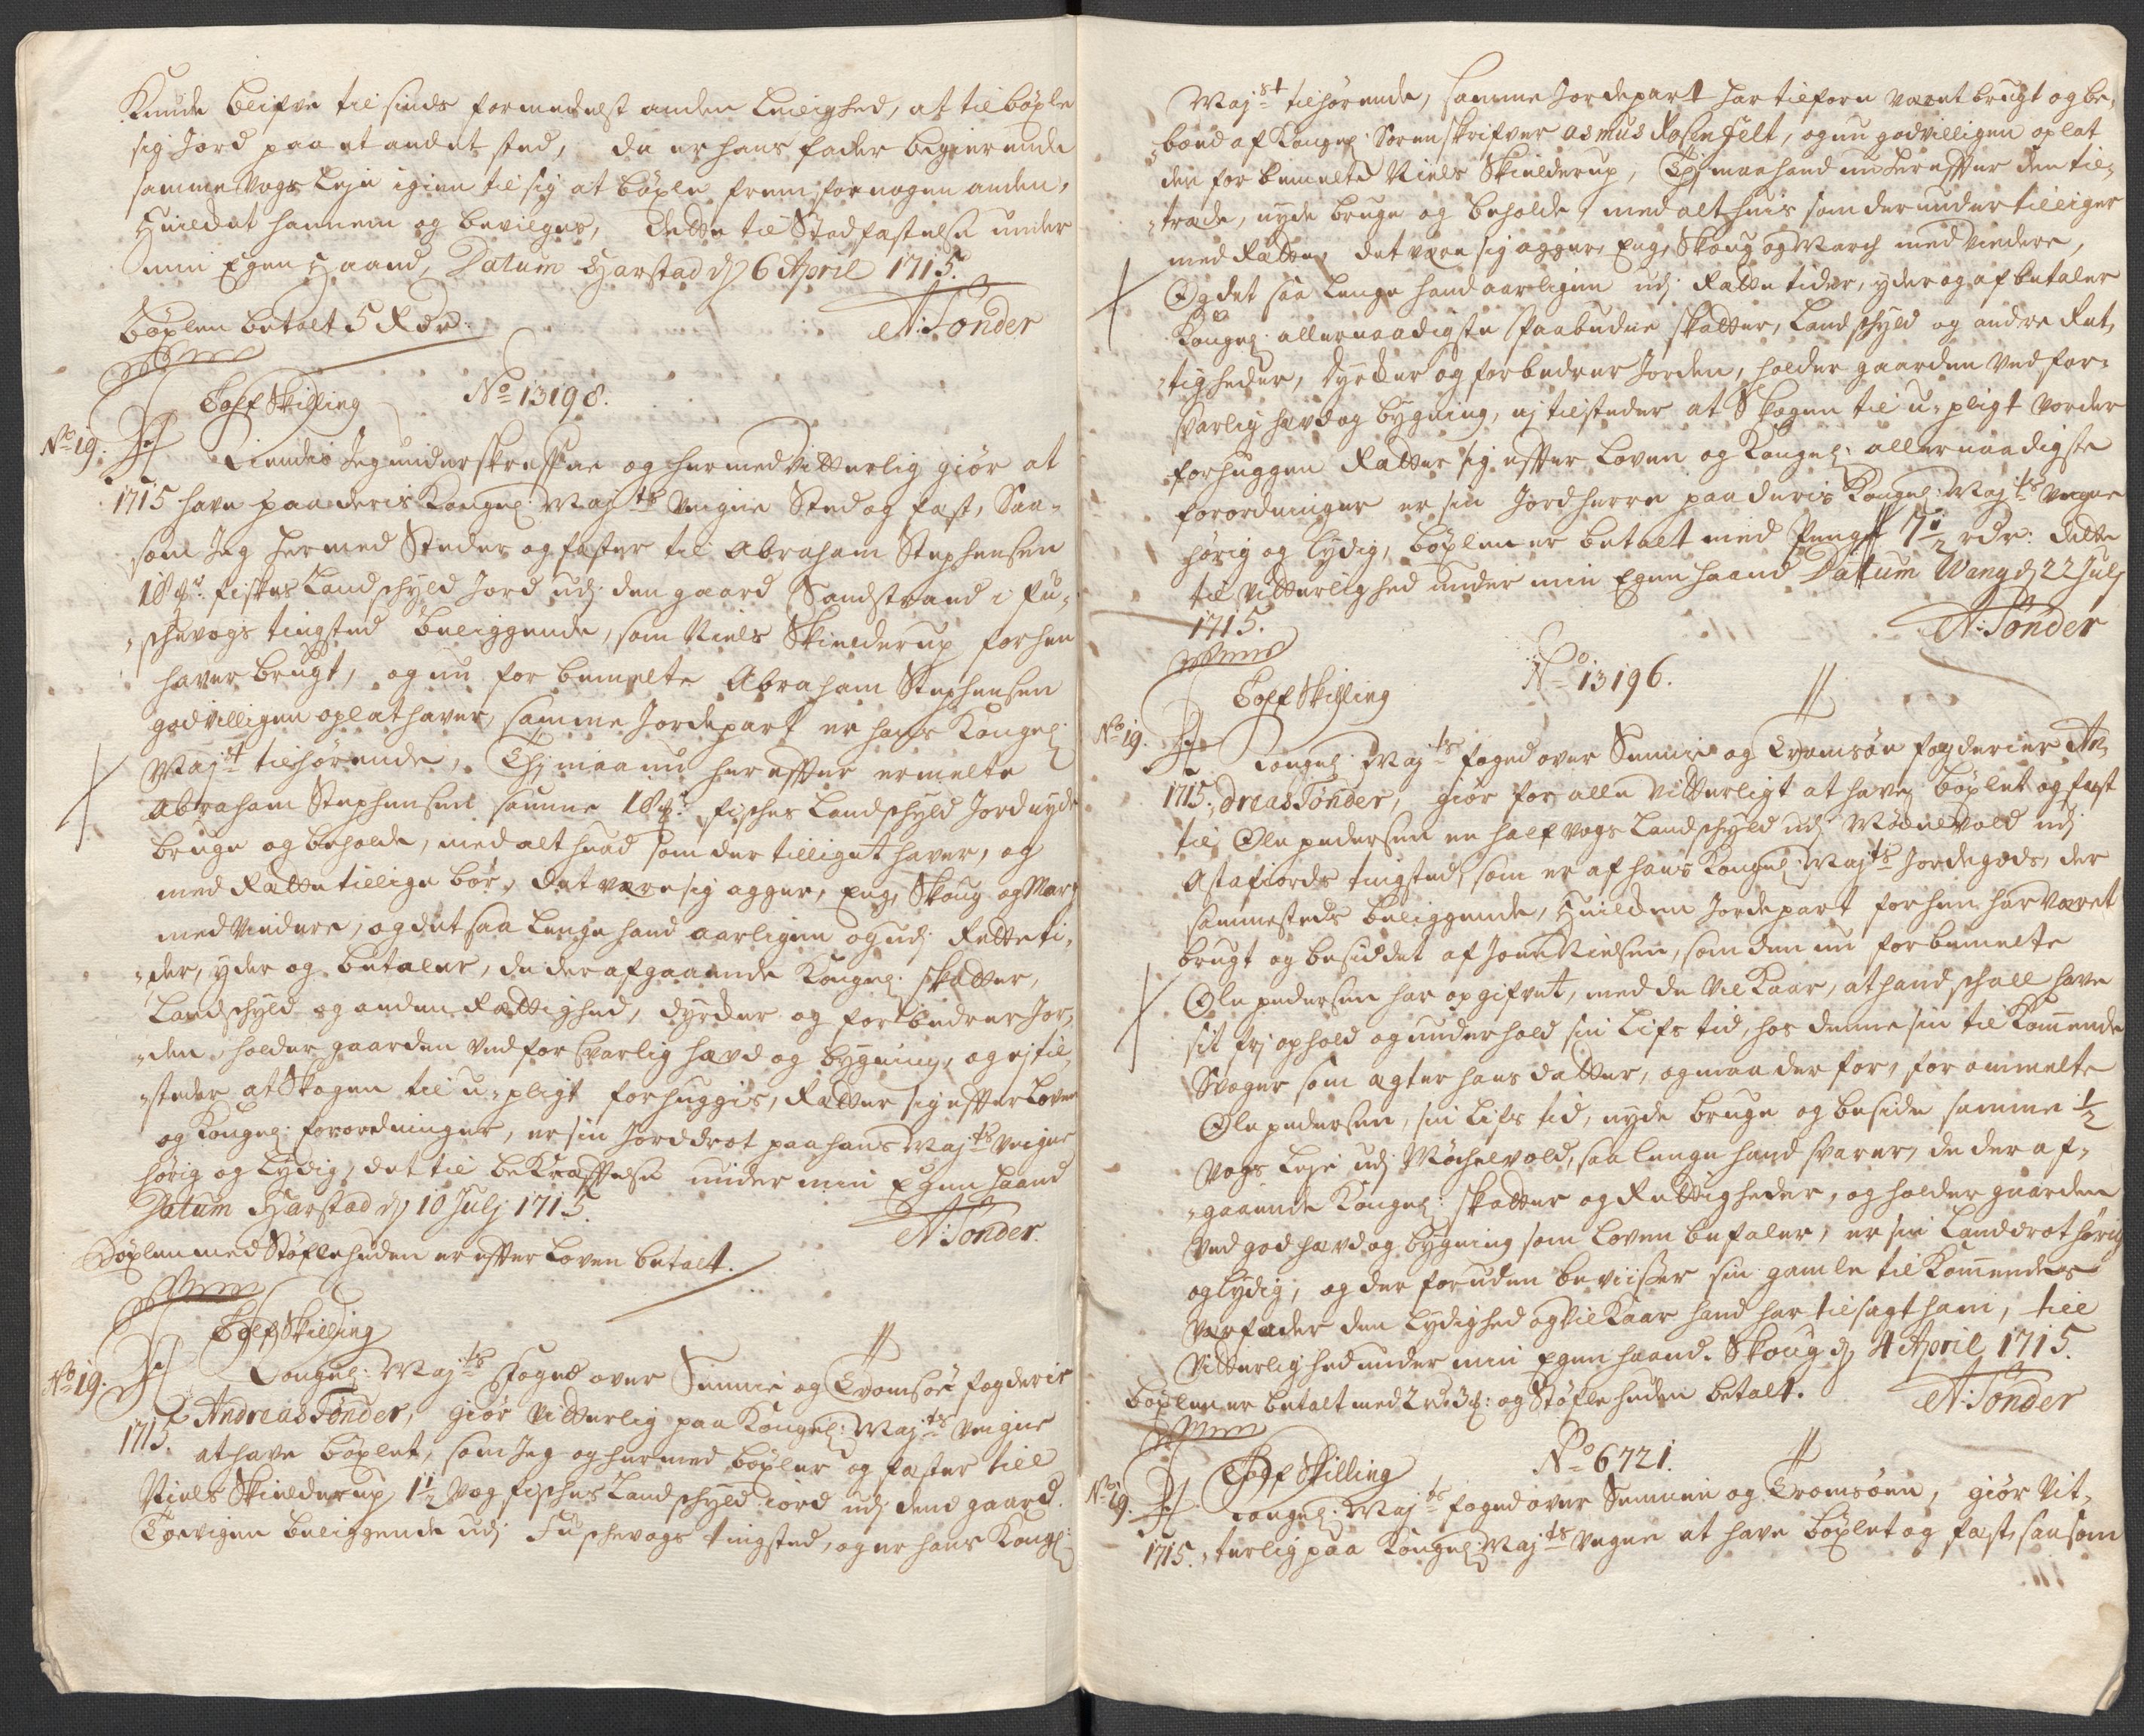 Kunde blifve til sinds formedelst anden leilighed, at tilbøxle
sig Jord paa et andet sted, da er hans fader begierende
samme Vogs Leje igien til sig at bøxle frem for nogen anden,
Huilcket hannem og bevilges, dette til Stadfæstelse under
min Egen Haand, Datum Harstad dj 6 April 1715.
bøxlen betalt 5 Rdr:
A: Tønder
Tolf Skilling No 13198.
No 19. Kiendis Jeg underskrefne og hermed Vitterlig giør at
1715 have paa deris Kongel: Maj:ts Veigne Sted og fæst, Saa-
som Jeg hermed Steder og fæster til Abraham Stephensen
18 pd: fiskes Landschyld Jord udj den gaard Sandstrand i Fu-
schevogs tingsted beliggende, som Niels Skielderup forhen
haver brugt, og nu forbemelte Abraham Stephensen
godvilligen oplat haver, samme Jordepart er hans Kongel:
Maj:t tilhørende, Thj maa nu herefter ermelte
Abraham Stephensen samme 18 pd: fisches Landschyld Jord nyde
bruge og beholde, med alt huad som der tilligget haver, og
med Rætte tillige bør, det være sig agger, Eng, Skoug og Mark
med Videre, og det saa lenge hand aarligen og udj Rette ti-
der, yder og betaler, de der afgaaende Kongel: skatter,
Landschyld og anden Rættighed, dyrcker og forbedrer Jor-
den, holder gaarden ved forsvarlig hævd og bygning, og ej til-
steder at Skogen til u-pligt forhuggis, Rætter sig efter Loven
og Kongel: forordninger, er sin Jorddrot paa hans Maj:ts Veigne
hørig og Lydig, det til bekræftelse under min Egen Haand
Datum Harstad dj 10 Julj 1715.
A: Tønder.
Bøxlen med Støfleheden er efter Loven betalt.
Tolf Skilling
No 19. Kongel: Maj:ts foged over Sennie og Tromsøe fogderie
1715. Andreas Tønder, giør Vitterlig paa Kongel: Maj:ts Veigne
at have bøxlet, som Jeg og hermed bøxler og fæster till
Niels Skielderup, 1 1/2 Vog fisches Landschyld iord udj dend gaard
beliggende udj Fuschevogs tingsted, og er hans Kongl:
Maj:st tilhørende, samme Jordepart har tilforn været brugt og be-
boed af Kongel: Sorenskrifver Asmus Rosenfelt, og nu godvilligen oplat
den forbemelte Niels Skielderup, Thj maa hand nu herefter den til-
træde, nyde bruge og beholde, med alt huis som derunder tilliger
med Rætte, det være sig agger, Eng, Skoug og March med Videre,
Og det saa Lenge hand aarligen udj Rætte tider, yder og afbetaler
Kongel: allernaadigste Paabudne skatter, Landschyld og andre Ret-
tigheder, dyrcker og forbedrer Jorden, holder gaarden Ved for-
svarlig hævd og bygning, ej tilsteder at Skogen til u-pligt vorder
forhuggen Rætter sig efter Loven og Kongel: allernaadigste
forordninger er sin Jordherre paa deris Kongel: Maj:ts Vegne
hørig og Lydig, bøxlen er betalt med Penge 7 1/2 rdr: dette
til Vitterlighed under min Egen haand Datum Wang dj 22 Julj
1715.
A: Tønder
Tolf Skilling No 13196.
No 19. Kongel: Maj:ts foged over Sennie og Tromsøe fogderier An-
1715. dreas Tønder, giør for alle Vitterligt at have bøxlet og fæst
til Ole pedersen en half vogs Landschyld udj Møchelvold udj
Astafiords tingsted, som er af hans Kongel: Maj:ts Jordegods, der
sammesteds beliggende, Huilcken Jordepart forhen har været
brugt og besiddet af Joen Nielsen, som den nu forbemelte
Ole pedersen har opgifvet, med de Vilkaar, at hand schall have
sit frj ophold og underhold sin Lifs tid, hos denne sin tilkommende
Svoger som ægter hans datter, og maa der for, forommelte
Ole pedersen, sin Lifs tid, nyde bruge og beside samme 1/2
Vogs Leje udj Møchelvold, saa lenge hand svarer, de der af-
gaaende Kongel: skatter og Rettigheder, og holder gaarden
ved god hævd og bygning som Loven befaler, er sin Landdrot hørig
og Lydig, og der foruden beviisser sin gamle tilkommende
Verfader den Lydighed og Vilkaar hand har tilsagt ham, till
Vitterlighed under min Egen haand. Skoug dj 4 April 1715.
bøxlen er betalt med 2 rd: 3 : og Støfleheden betalt.
A: Tønder
Tolf Skilling No 6721.
No 19. Kongel: Maj:ts foged over Sennien og Tromsøen, giør Vit-
1715. terlig paa Kongel: Maj:ts Vegne at have bøxlet og fæst, saasom